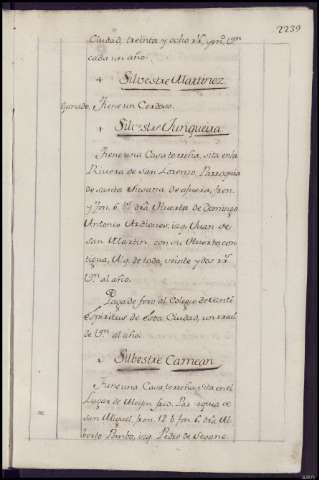 2239
Ciudad, treinta y ocho rs. y mrs. Vn
cada un año.
Silvestre Martinez
Ganado. Tiene un Cerdoso.
Silvestre Junqueira
Tiene una Casa terreña, sita en la
Rivera de san Lorenzo, Parroquia
de santa Susana de afuera, fron.
y fon. 6. Vs. dra. Huerta de Domingo
Antonio Ardions, izq. Juan de
san Martin con su Huerta con
tigua, Alq. de todo, veinte y dos rs.
Vn. al año.
Paga de foro al Colegio de santi
espiritus de esta Ciudad, un real
de Vn. al año.
Silbestre Carnean
Tiene una Casa terreña, sita en el
Lugar de de
san Miguel, fron. 12 6 fon. 6. dra. Al
berto Pombo, izq. Pedro de Seoane.